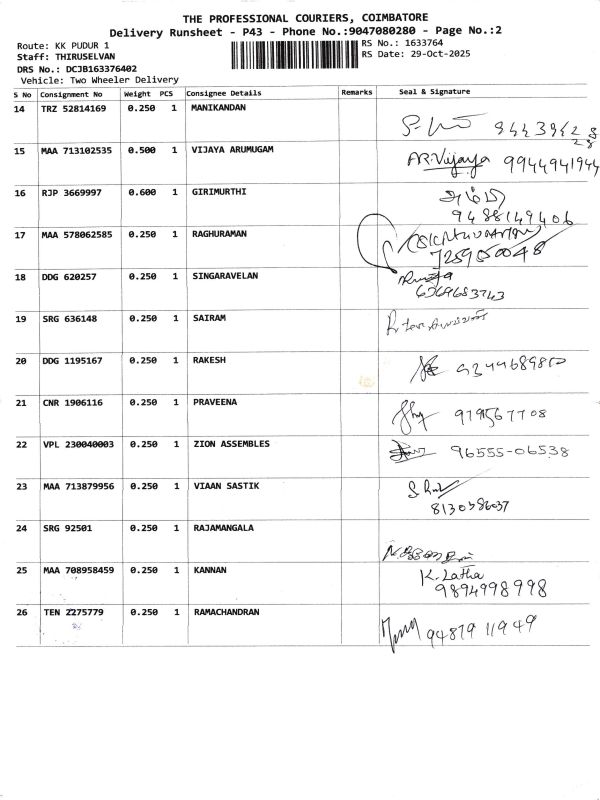 THE PROFESSIONAL COURIERS, COIMBATORE
Delivery Runsheet - P43 - Phone No.:9047080280 - Page No.:2
Route: KK PUDUR 1
RS No.: 1633764
Staff: THIRUSELVAN
RS Date: 29-Oct-2025
DRS No.: DCJB163376402
Vehicle: Two Wheeler Delivery
S No Consignment No Weight PCS Consignee Details Remarks Seal & Signature
14 TRZ 52814169 0.250 1 MANIKANDAN
15 MAA 713102535 0.500 1 VIJAYA ARUMUGAM AR.Vijaya 9944941944
16 RJP 3669997 0.600 1 GIRIMURTHI
9488149406
17 MAA 578062585 0.250 1 RAGHURAMAN
7259500048
18 DDG 620257 0.250 1 SINGARAVELAN
6369683743
19 SRG 636148 0.250 1 SAIRAM
20 DDG 1195167 0.250 1 RAKESH
21 CNR 1906116 0.250 1 PRAVEENA
22 VPL 230040003 0.250 1 ZION ASSEMBLES 96555-06538
23 MAA 713879956 0.250 1 VIAAN SASTIK
24 SRG 92501 0.250 1 RAJAMANGALA
25 MAA 708958459 0.250 1 KANNAN K. Latha
9894998998
26 TEN 2275779 0.250 1 RAMACHANDRAN 94879 11949